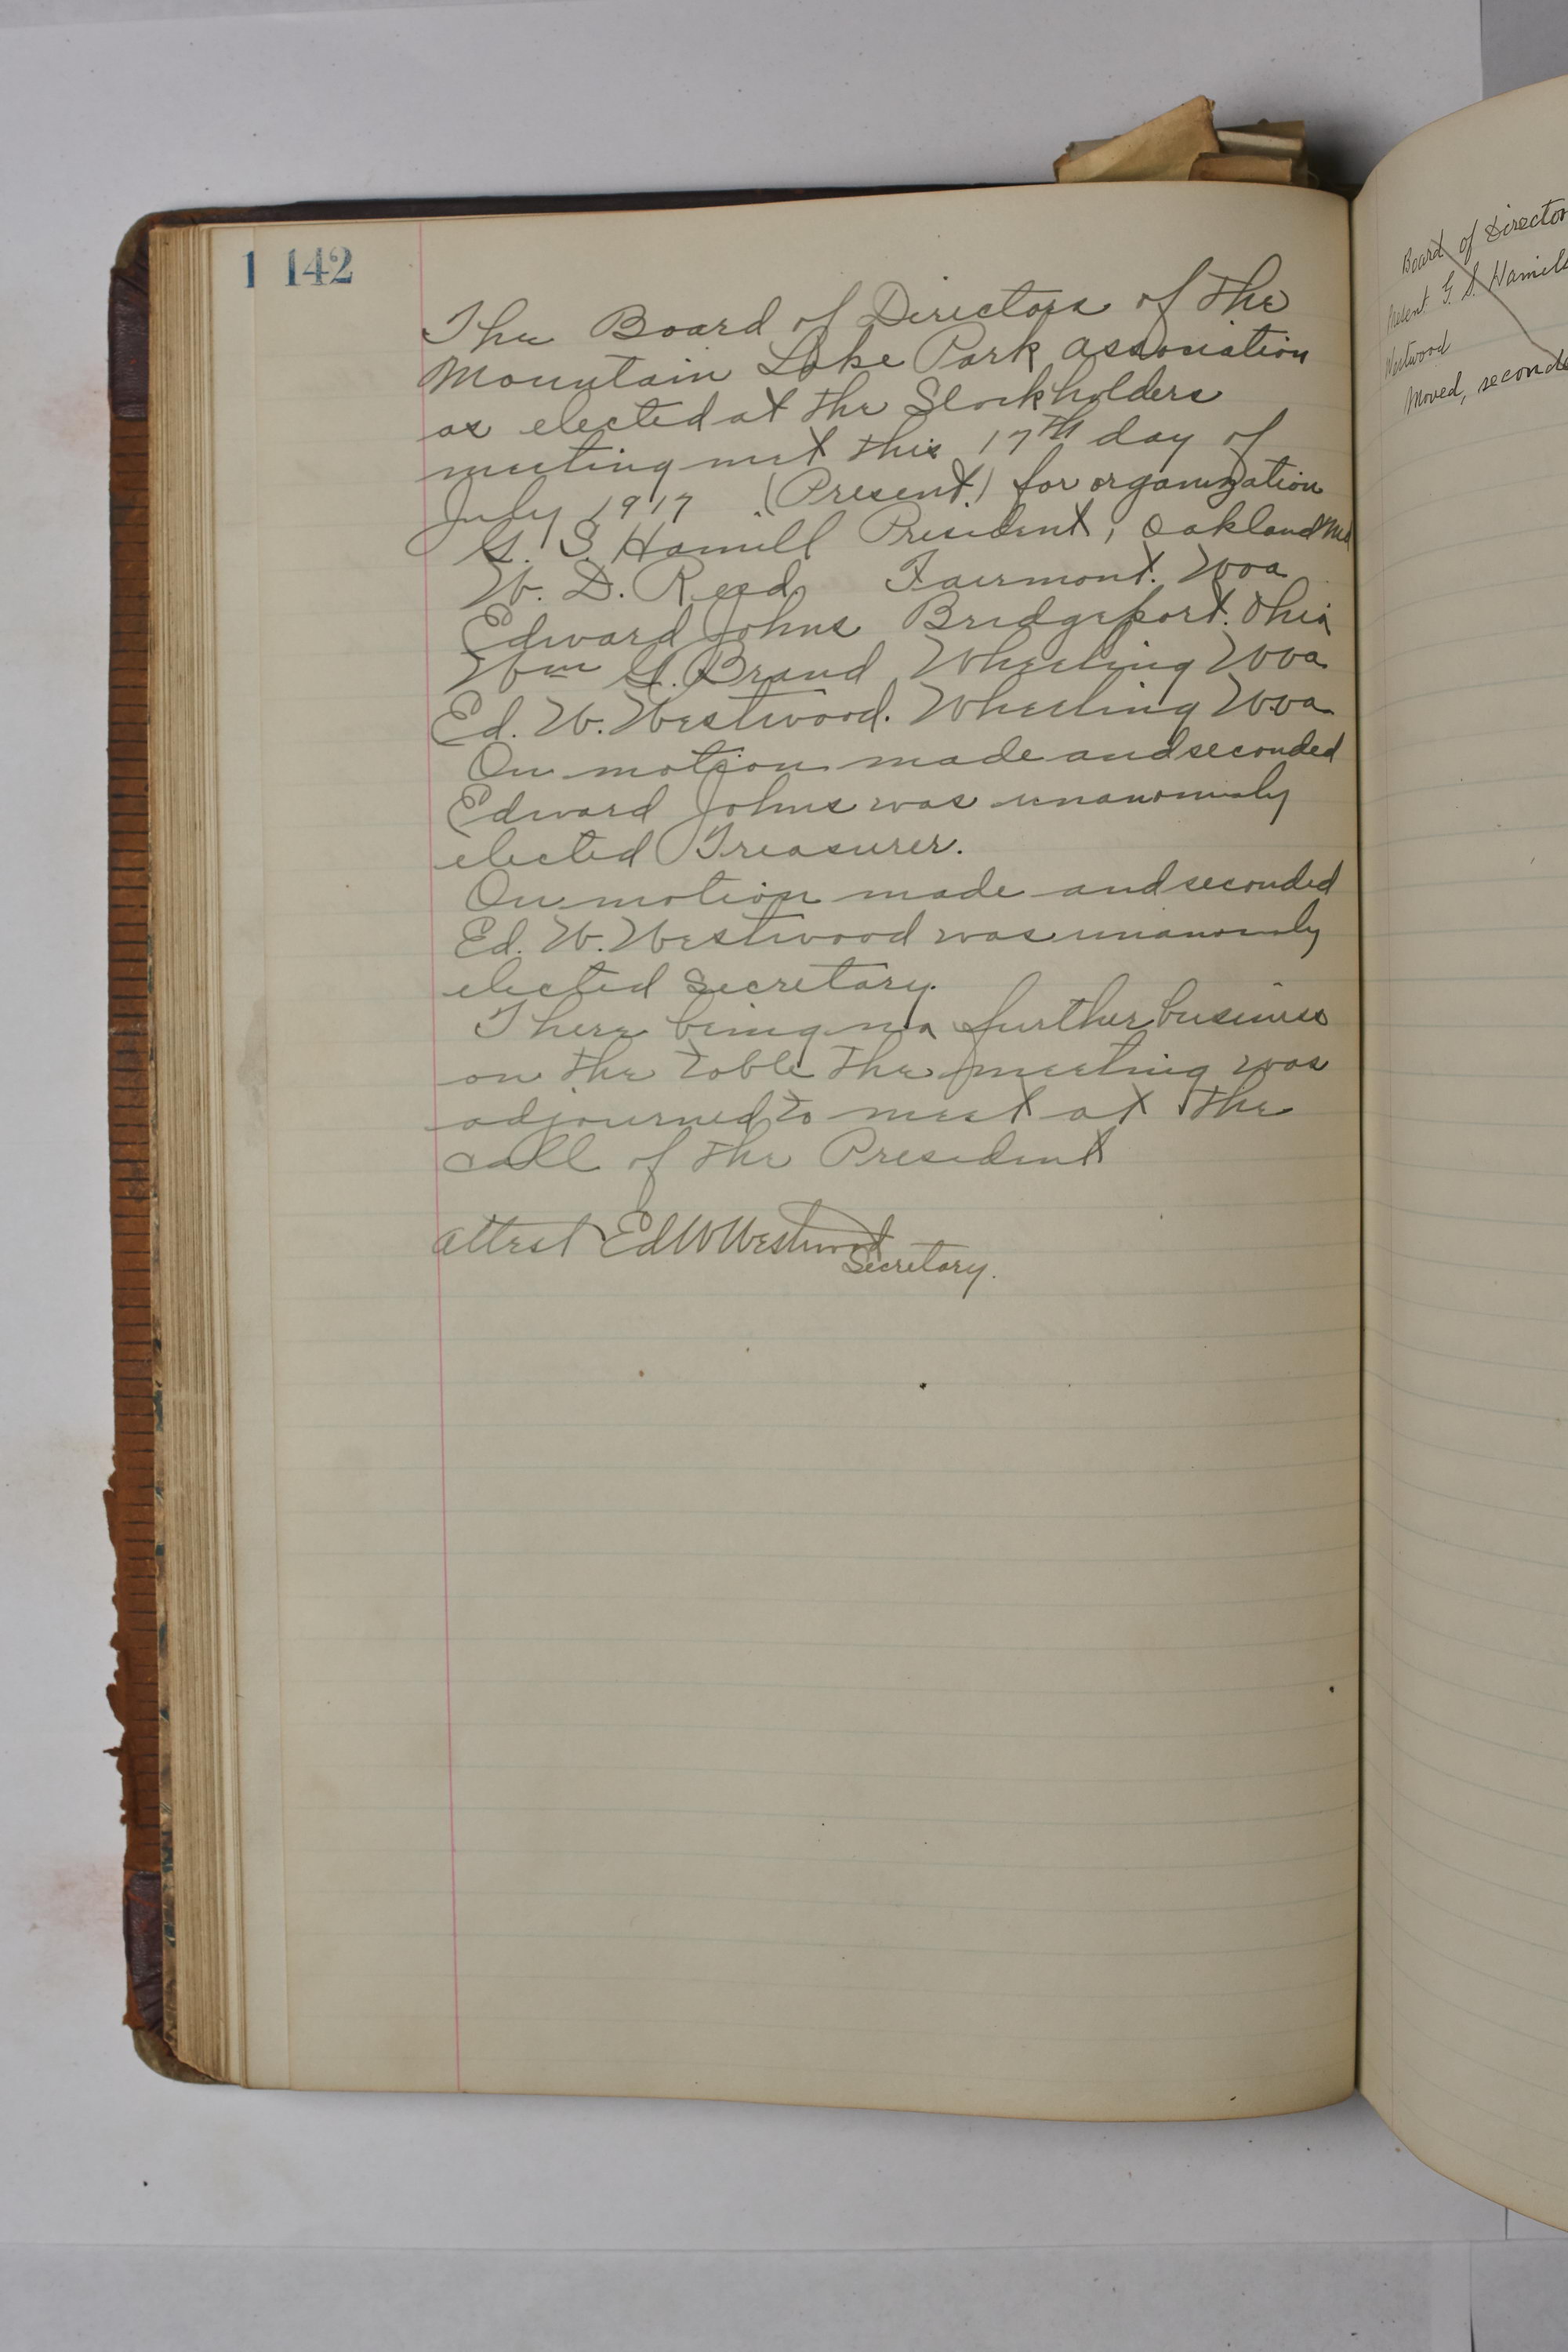 1 142
The Board of Directors of the
Mountain Lake Park Association
as elected at the Stockholders
meeting met this 17th day of
July 1917 (Present.) for organization
G. S. Hamill President, Oakland Md
W. D. Reed Fairmont. Wva
Edward Johns Bridgeport. Ohio
Wm G. Brand Wheeling Wva
Ed. W. Westwood. Wheeling W.va
On motion made and seconded
Edward Johns was unanomialy
elected Treasurer.
On motion made and seconded
Ed. W. Westwood was unanomly
elected Secretary.
There being no further business
on the table the meeting was
adjourned to meet at the
call of the President
Attest Ed W Westwood
Secretary.
Board of Director
Present G. S. Hamil
Westwood
Moved, seconde